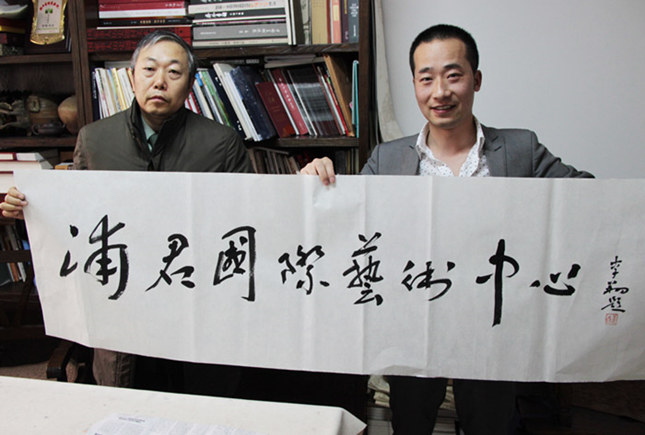 浦君國際藝術中心
李翔題